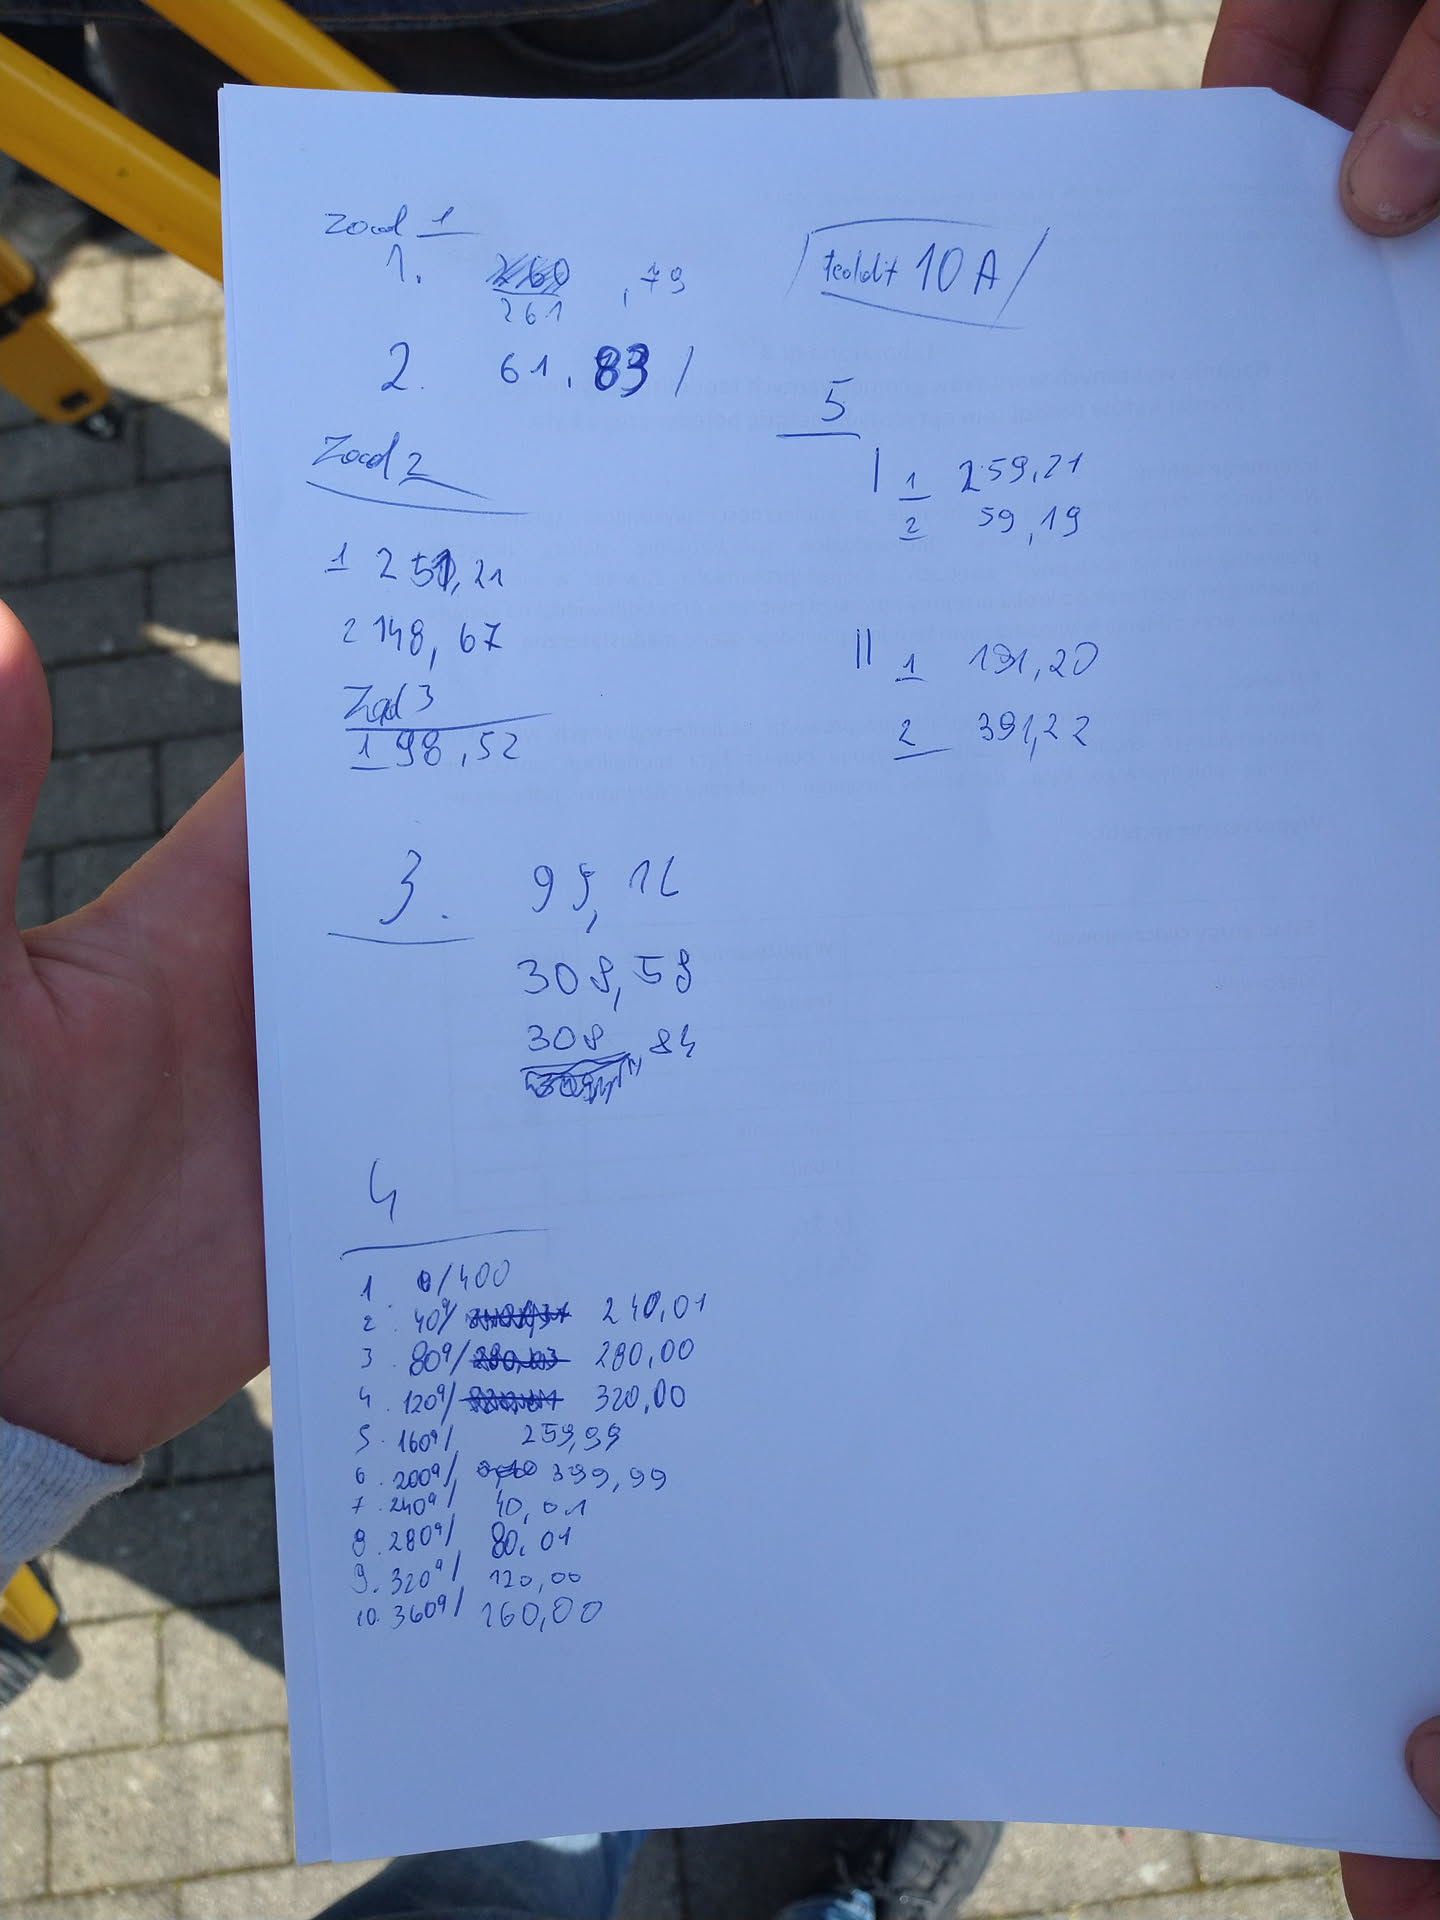 Zad 1
1. 261,79
2. 61,83 /
Zad 2
1 251,21
2 148,67
Zad 3
1 98,52
3. 95,12
308,59
308,84
4
1 0/400
2. 40g/ 240,01
3. 80g/ 280,00
4. 120g/ 320,00
5. 160g/ 259,99
6. 200g/ 399,99
7. 240g/ 40,01
8. 280g/ 80,01
9. 320g/ 120,00
10. 360g/ 160,00
teoldit 10A
5
I 1 259,21
2 59,19
II 1 191,20
2 391,22